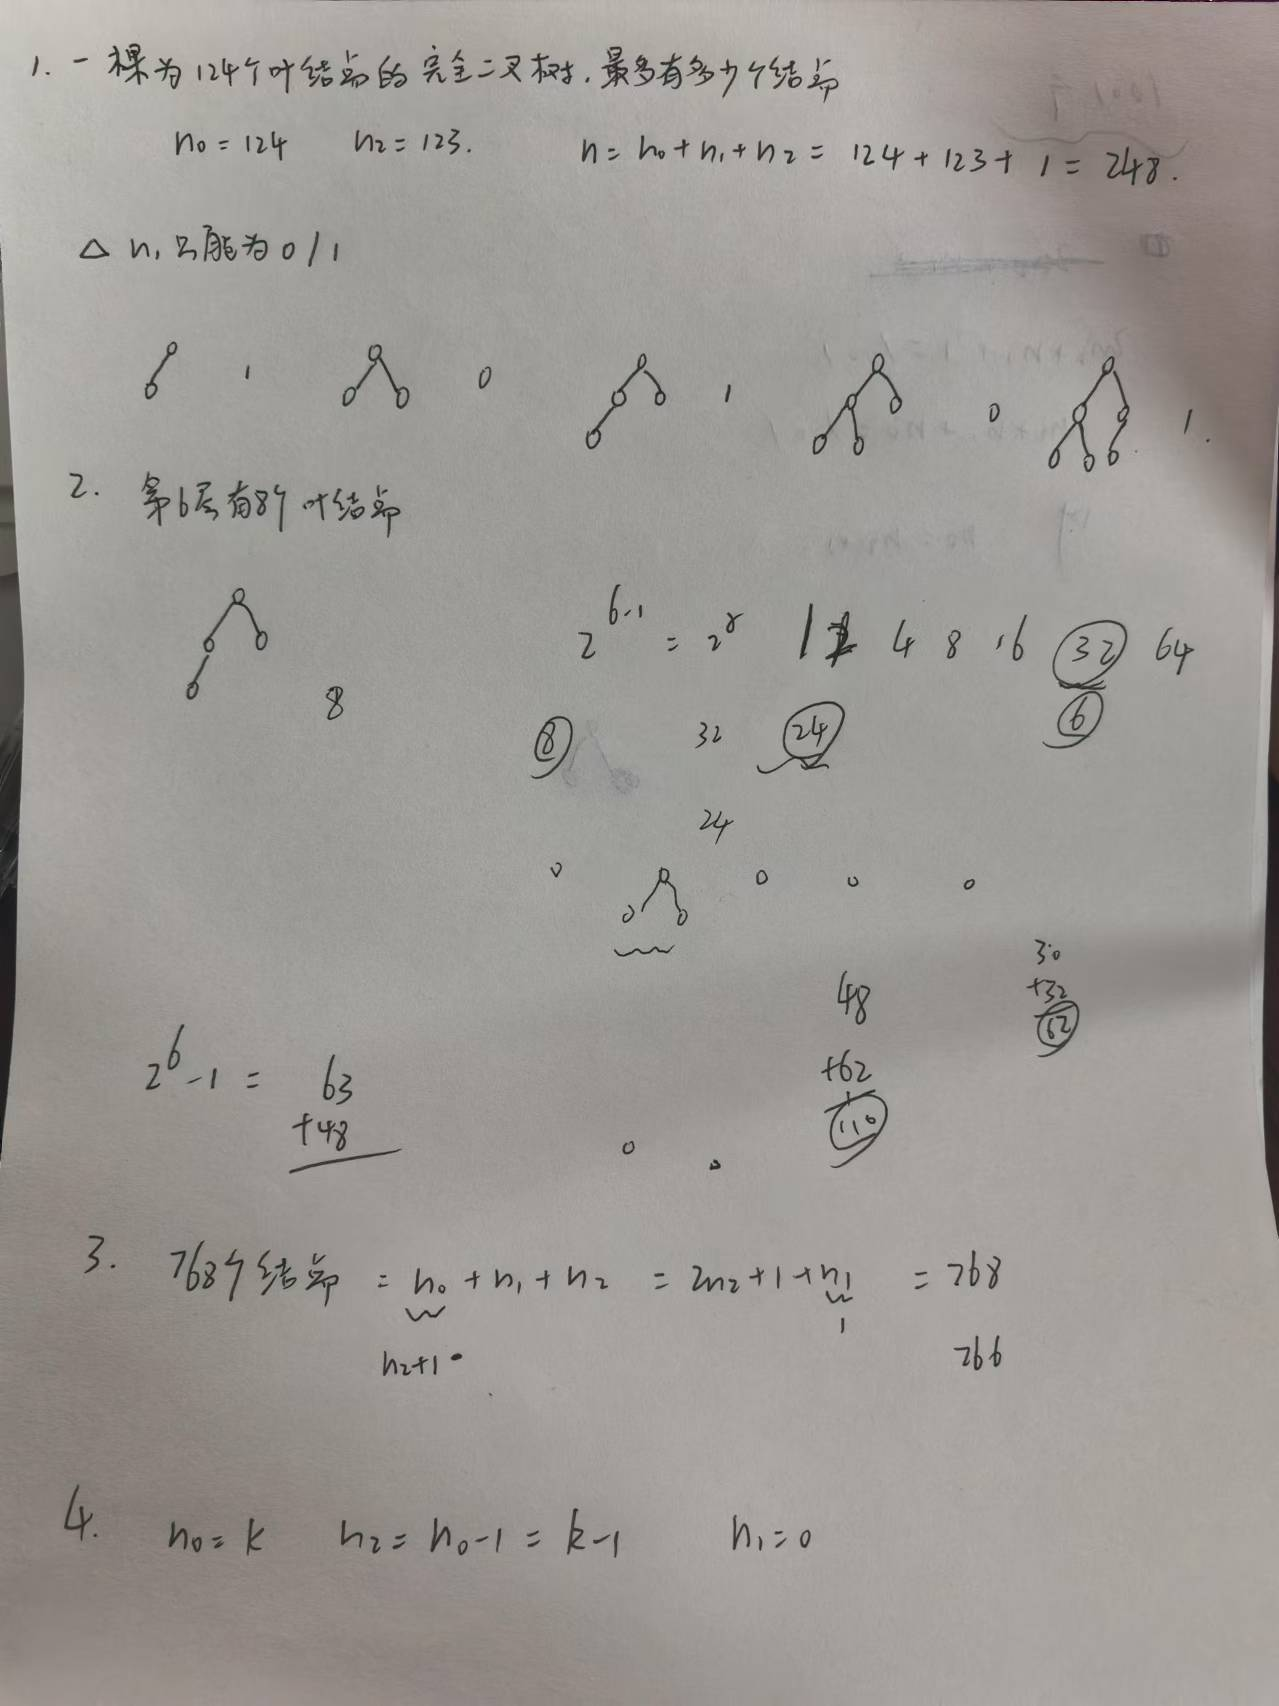 1. 一棵为124个叶结点的完全二叉树.最多有多少个结点
n₀=124 n₂=123. n=n₀+n₁+n₂= 124+123+1=248.
△ n₁只能为0/1
1 0 1 0 1.
2. 第6层有8个叶结点
2^(6-1) = 2^8 1 4 8 16 32 64
8
8 32 24 6
24
30
48 +32
62
2^6-1= 63 +62
+48 110
3. 768个结点 = n₀+n₁+n₂ = 2n₂+1+n₁ =768
1
n₂+1 766
4. n₀=k n₂=n₀-1=k-1 n₁=0